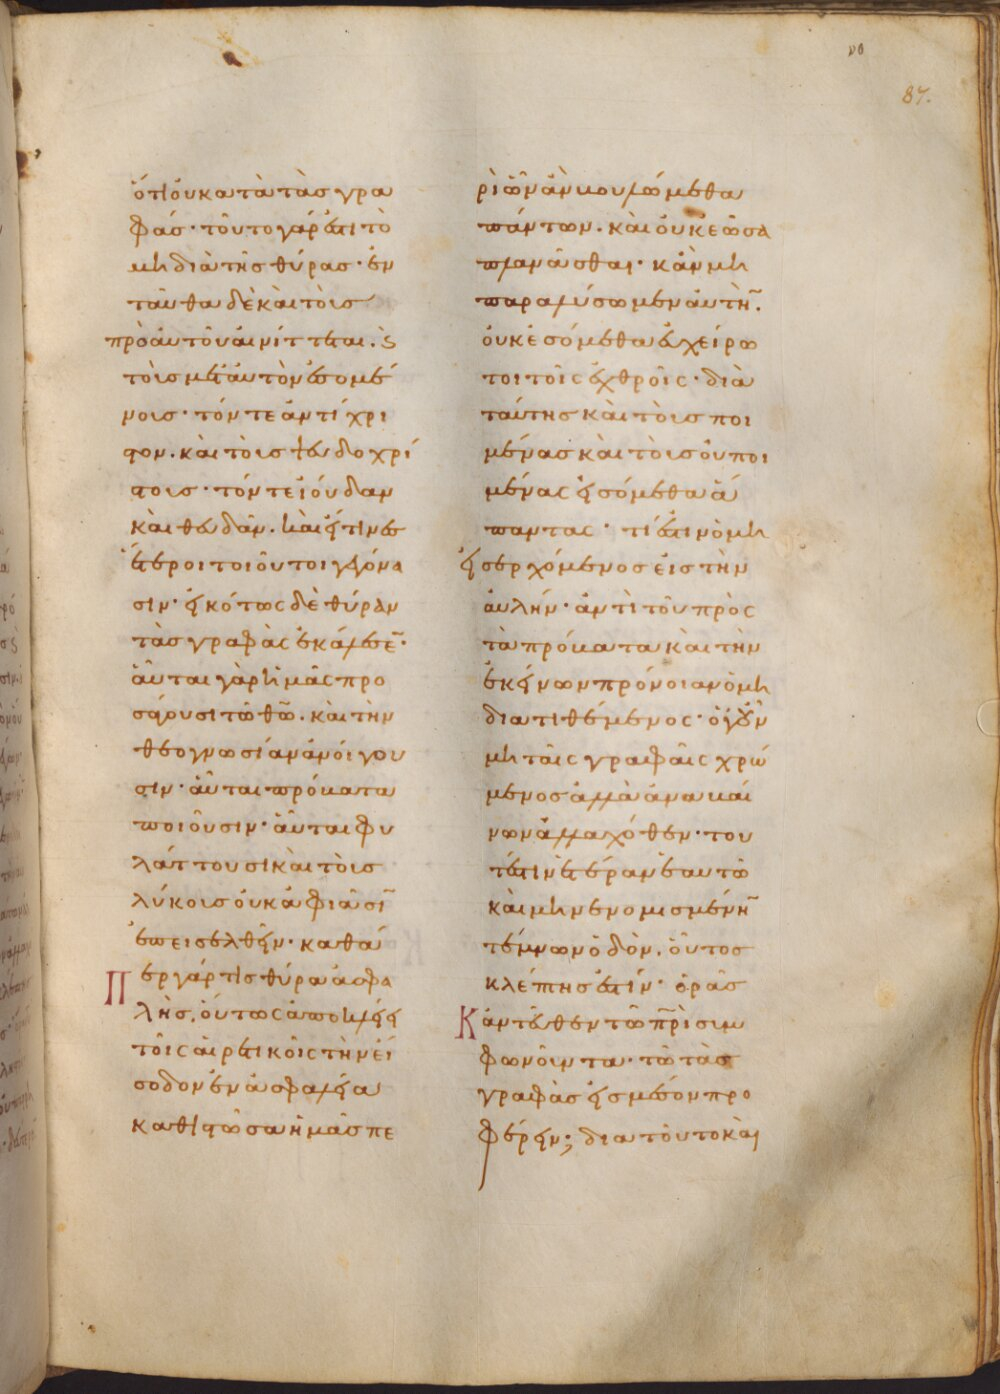 νθ
87.
ὅτι οὐ κατὰ τὰς γρα
φάς· τοῦτο γάρ ἐστι τὸ
μὴ διὰ τῆς θύρας· ἐν
ταῦθα δὲ καὶ τοῖς
πρὸ αὐτοῦ αἰνίττεται. ϛ
τοῖς μετ' αὐτὸν ἐσομέ
νοις· τόν τε ἀντίχρι
στον. καὶ τοῖς ψευδοχρί
στοις· τόν τε ἰούδαν
καὶ θευδᾶν. καὶ εἴ τινες
ἕτεροι τοιοῦτοι γεγόνα
σιν· εἰκότως δὲ θύραν
τὰς γραφὰς ἐκάλεσε̄·
αὗται γὰρ ἡμᾶς προ
σάγουσι τῶ θ̄ω̄. καὶ τὴν
θεογνωσίαν ἀνοίγου
σιν· αὗται πρόβατα
ποιοῦσιν· αὗται φυ
λάττουσι καὶ τοῖς
λύκοις οὐκ ἀφιᾶσῑ
ἐπεισελθεῖν· καθά
Περ γάρ τις θύρα ἀσφα
λὴς, οὕτως ἀποκλείει
τοῖς αἱρετικοῖς τὴν εἴ
σοδον ἐν ἀσφαλεία
καθιστῶσα ἡμᾶς πε
ρὶ ὧν ἂν βουλώμεθα
πάντων. καὶ οὐκ ἐῶσα
πλανᾶσθαι· κἂν μὴ
παραλύσωμεν αὐτὴ̄.
οὐκ ἐσόμεθα εὐχείρω
τοι τοῖς ἐχθροῖς· διὰ
ταύτης καὶ τοὺς ποι
μένας καὶ τοὺς οὐ ποι
μένας εἰσόμεθα ἅ
παντας· τί ἐστιν ὁ μὴ
εἰσερχόμενος εἰς τὴν
αὐλήν· ἀντὶ τοῦ πρὸς
τὰ πρόβατα καὶ τὴν
ἐκείνων πρόνοιαν ὁ μὴ
διατιθέμενος· ὁ γοῦν
μὴ ταῖς γραφαῖς χρώ
μενος ἀλλὰ ἀναβαί
νων ἀλλαχόθεν· του
τέστιν ἑτέραν ἑαυτῶ
καὶ μὴ νενομισμένη̄
τέμνων ὁδὸν. οὗτος
κλέπτης ἐστίν· ὁρᾶς
Κἀντεῦθεν τῶ π̄ρὶ συμ
φωνοῦντα· τῶ τὰς
γραφὰς εἰς μέσον προ
φέρειν; διὰ τοῦτο καὶ